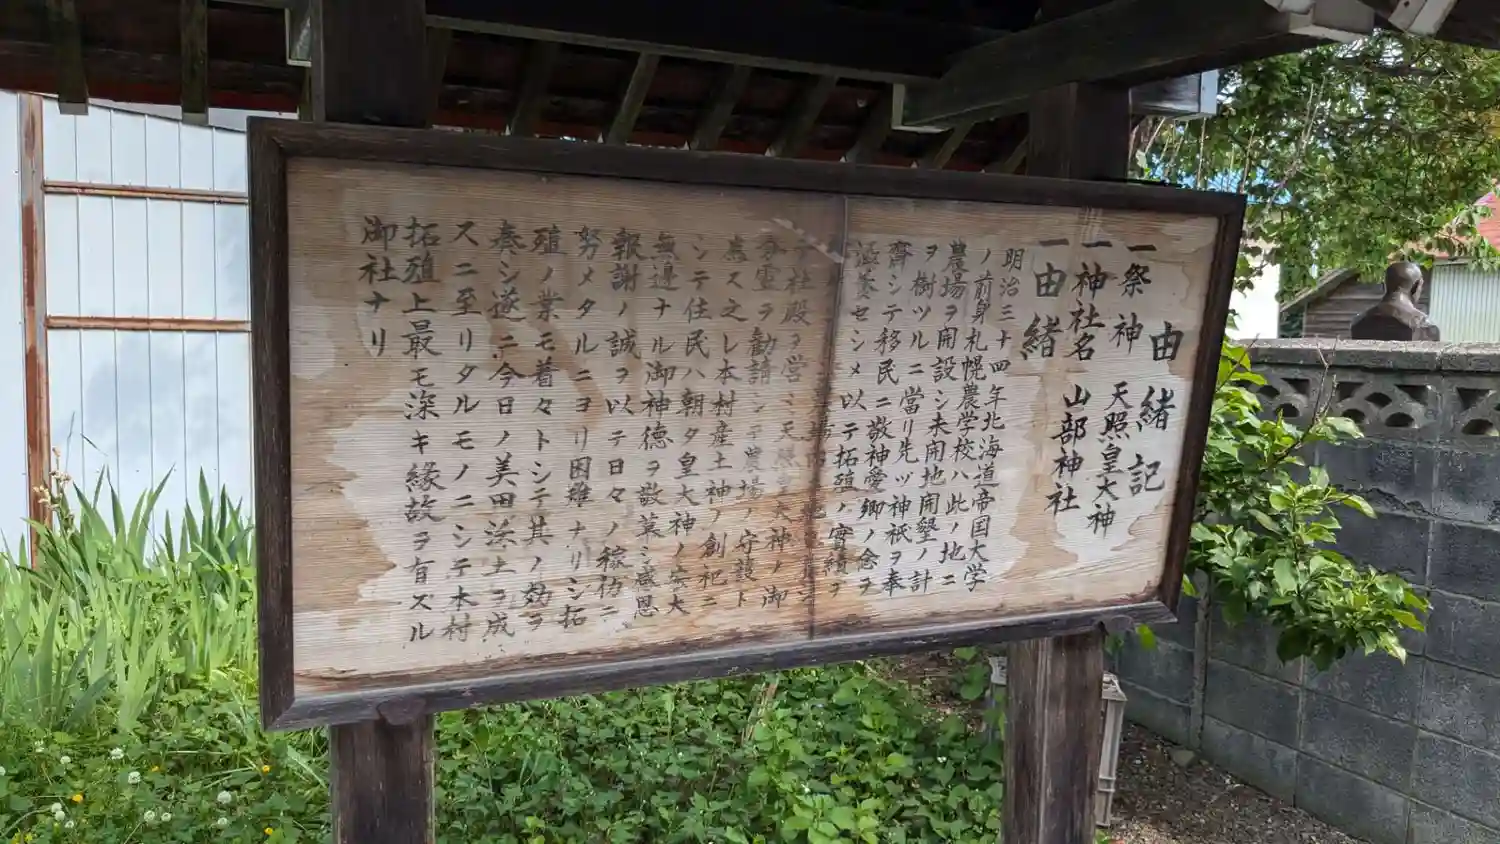 由緒記
一祭神 天照皇大神
一神社名 山部神社
一由緒
明治三十四年北海道帝国大学
ノ前身札幌農学校ハ此ノ地ニ
農場ヲ開設シ未開地開墾ノ計
ヲ樹ツルニ當リ先ツ神祇ヲ奉
齋シテ移民ニ敬神愛郷ノ念ヲ
涵養セシメ以テ拓殖ノ實績ヲ
社殿ヲ営ミ天照皇大神ノ御
霊ヲ勧請シテ農場ノ守護ト
為ス之レ本村産土神ノ創祀ニ
シテ住民ハ朝タ皇大神ノ宏大
無邊ナル御神徳ヲ敬慕ミ感恩
報謝ノ誠ヲ以テ日々ノ稼穡ニ
努メタルニヨリ困難ナリシ拓
殖ノ業モ着々トシテ其ノ効ヲ
奏シ遂ニ今日ノ美田沃土ヲ成
スニ至リタルモノニシテ本村
拓殖上最モ深キ縁故ヲ有スル
御社ナリ